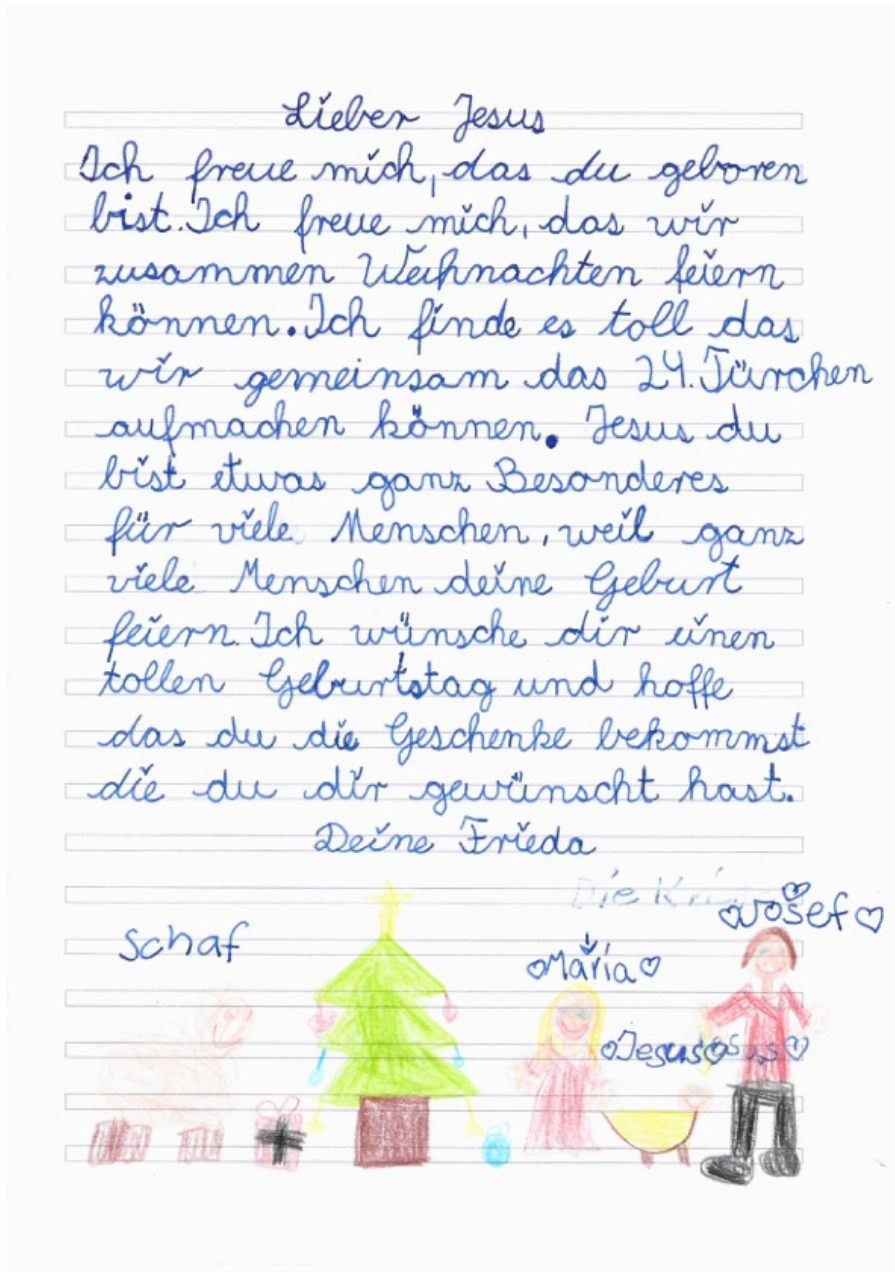 Lieber Jesus
Ich freue mich, das du geboren
bist. Ich freue mich, das wir
zusammen Weihnachten feiern
können. Ich finde es toll das
wir gemeinsam das 24. Türchen
aufmachen können. Jesus du
bist etwas ganz Besonderes
für viele Menschen, weil ganz
viele Menschen deine Geburt
feiern. Ich wünsche dir einen
tollen Geburtstag und hoffe
das du die Geschenke bekommst
die du dir gewünscht hast.
Deine Frieda
Die
Josef
Schaf
Maria
Jesus